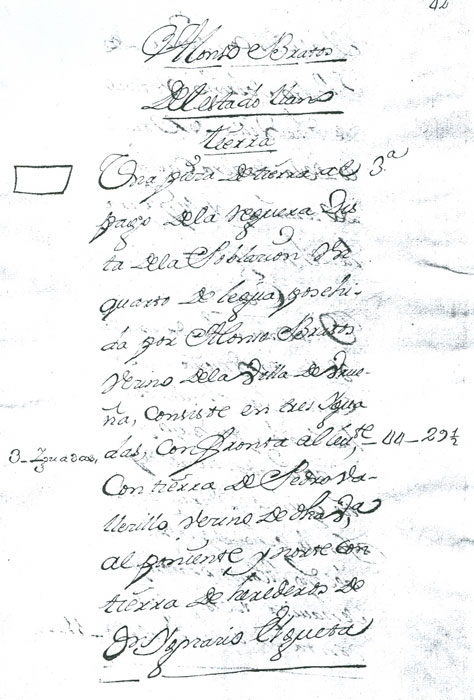 42
Alonso Bratos
Del estado llano
tierra
Una pieza de tierra al 3.ª
pago de la reguera dis
ta de la Poblacion un
quarto de legua, poschi-
da por Alonso Bratos
Vecino de la Villa de Urue-
ña, consiste en tres Ygua
3_Yguadas, das, confronta al lev.te _ 44 _ 29½
Con tierra de Pedro Va-
llecillo Vecino de dha V.a
al poniente y norte con
tierra de herederos de
Dn Ygnacio Ezqueta